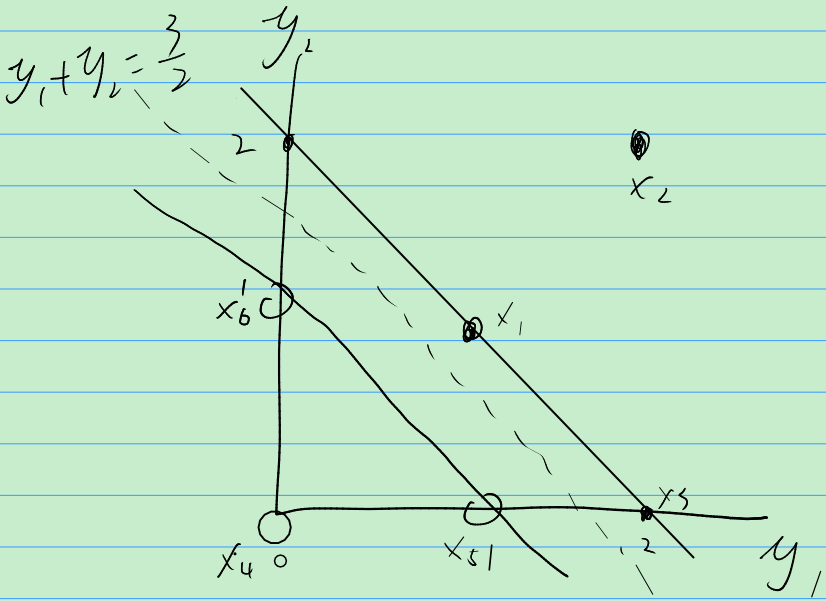 y₁+y₂=3/2
y₂
2
x₂
x₆ 1
x₁
x₃
x₄ 0
x₅ 1
2
y₁